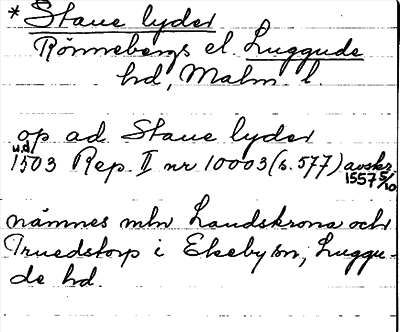 * Staue lyder
Rönnebergs el. Luggude
hd, Malm l.
op ad Staue lyder
u.d.
1503 Rep. II nr 10003 (s. 577) avskr.
1557 5/10
nämnes mln Landskrona och
Truedstorp i Ekeby sn, Luggu-
de hd.